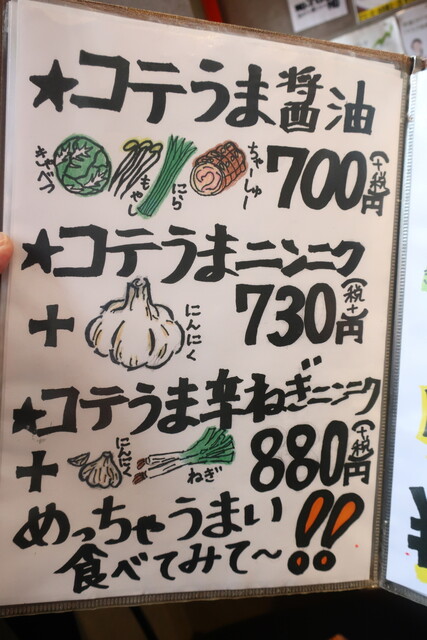 ★コテうま醤油
きゃべつ もやし にら ちゃーしゅー 700円(+税)
★コテうまニンニク
+ にんにく 730円(税+)
★コテうま辛ねぎニンニク
+ にんにく ねぎ 880円(+税)
めっちゃうまい
食べてみて〜!!